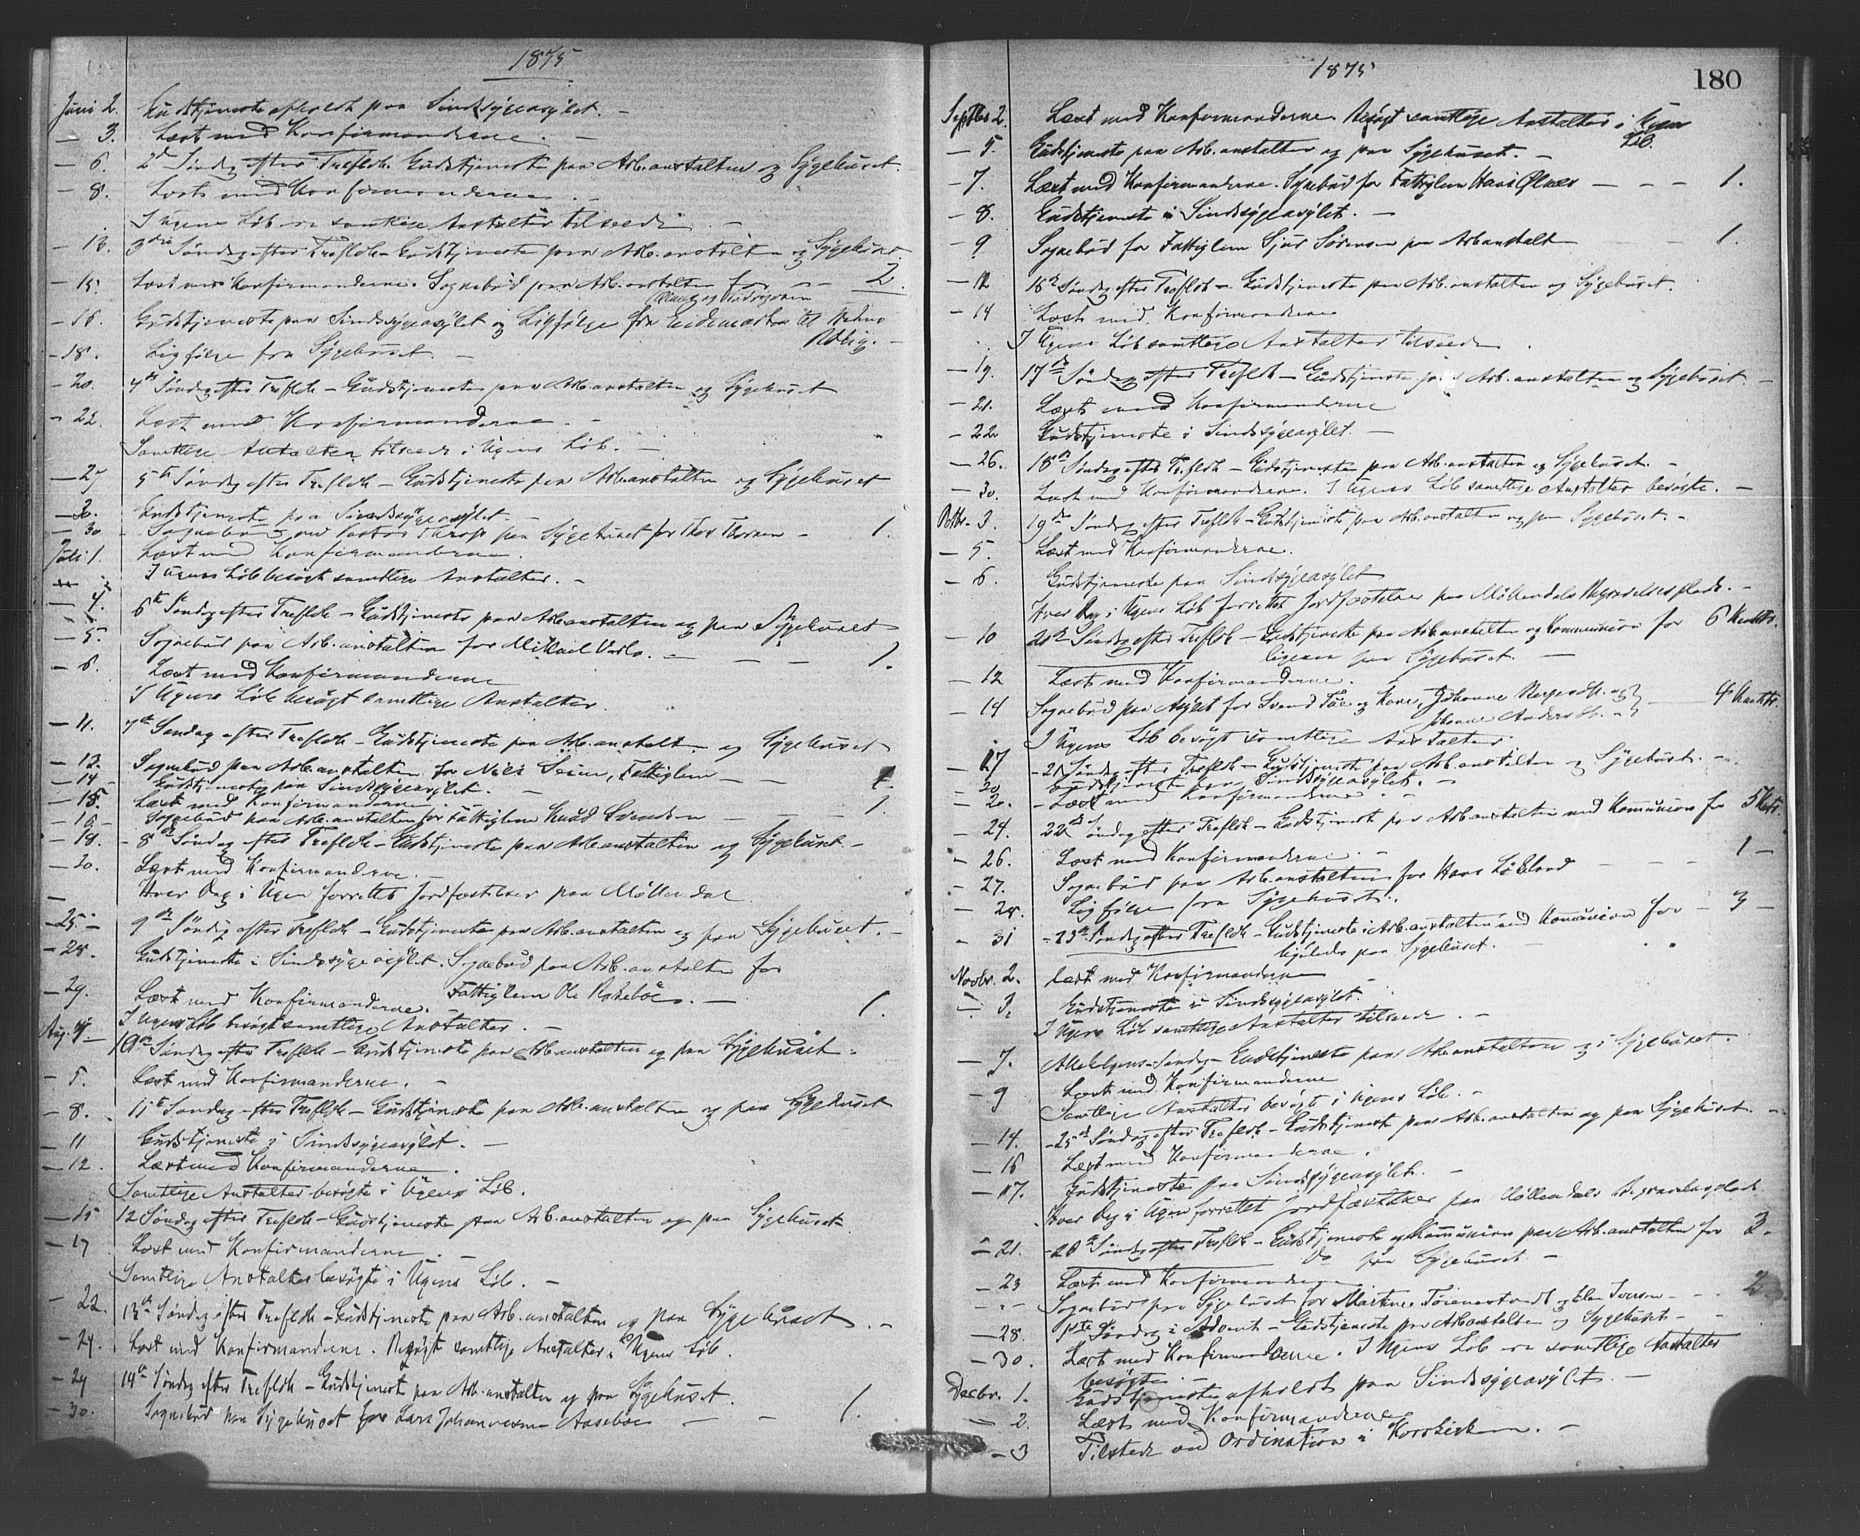 1875
Juni 2. Gudstjeneste afholdt paa Sindssygeasylet. -
- 3. Læst med Konfirmanderne. -
- 6. 2den Søndag efter Trefldh. Gudstjeneste paa Arb.anstalten og Sygehuset.
- 8. Læst med Konfirmanderne. -
I Ugens Løb er samtlige Anstalter tilseede. -
- 13. 3die Søndag efter Trefldh - Gudstjeneste paa Arb.anstalten og Sygehuset.
- 15. Læst med Konfirmanderne. Sognebud paa Arb.anstalten for - - 2.
- 16. Gudstjeneste paa Sindssygeasylet og Ligfølge fra
- 18. Ligfølge fra Sygehuset. -
- 20. 4de Søndag efter Trefldh - Gudstjeneste paa Arb.anstalten og Sygehuset
- 22. Læst med Konfirmanderne. -
Samtlige Anstalter tilseede i Ugens Løb. -
- 27 5te Søndag efter Trefldh - Gudstjeneste paa Arb.anstalten og Sygehuset
- 30. Gudstjeneste paa Sindssygeasylet. -
- 30 Sognebud ved Pastor paa Sygehuset for Thor - 1.
Juli 1. Læst med Konfirmanderne.
I Ugens Løb besøgt samtlige Anstalter. -
- 4. 6te Søndag efter Trefldh - Gudstjeneste paa Arb.anstalten og paa Sygehuset
- 5. Sognebud paa Arb.anstalten for Mikael - - - 1.
- 6. Læst med Konfirmanderne
I Ugens Løb besøgt samtlige Anstalter.
- 11. 7de Søndag efter Trefldh - Gudstjeneste paa Arb.anstalt. og Sygehuset
- 12. Sognebud paa Arb.anstalten for Nils Seim, Fattiglem - - 1.
- 14 - Gudstjeneste paa Sindssygeasylet. -
- 15. Læst med Konfirmanderne. -
- 16 - Sognebud paa Arb.anstalten for Fattiglem Knud Svendsen - - 1.
- 18. - 8de Søndag efter Trefldh - Gudstjeneste paa Arb.anstalten og Sygehuset -
- 20. Læst med Konfirmanderne. -
- Hver Dag i Ugen forrettet Jordfæstelser paa Møllendal
- 25 - 9de Søndag efter Trefldh - Gudstjeneste paa Arb.anstalten og paa Sygehuset. -
- 28. Gudstjeneste i Sindssygeasylet. Sognebud paa Arb.anstalten for
Fattiglem Ole - 1.
- 29. Læst med Konfirmanderne.
I Ugens Løb besøgt samtlige Anstalter. -
Aug. 1 - 10de Søndag efter Trefldh - Gudstjeneste paa Arb.anstalten og paa Sygehuset -
- 5. Læst med Konfirmanderne. -
- 8. 11te Søndag efter Trefldh - Gudstjeneste paa Arb.anstalten og paa Sygehuset
- 11 Gudstjeneste i Sindssygeasylet. -
- 12. Læst med Konfirmanderne.
Samtlige Anstalter besøgte i Ugens Løb.
- 15 12 Søndag efter Trefldh - Gudstjeneste paa Arb.anstalten og paa Sygehuset
- 17 Læst med Konfirmanderne. -
Samtlige Anstalter besøgte i Ugens Løb. -
- 22. 13de Søndag efter Trefldh - Gudstjeneste paa Arb.anstalten og paa Sygehuset. -
- 24. Læst med Konfirmanderne. Besøgt samtlige Anstalter i Ugens Løb.
- 29 14de Søndag efter Trefldh - Gudstjeneste paa Arb.anstalten og paa Sygehuset. -
- 30. Sognebud paa Sygehuset for Lars Johannesen Aasebøe - - 1.
1875
180
Septbr 2. Læst med Konfirmanderne Besøgt samtlige Anstalter i Ugens
Løb.
- 5. Gudstjeneste paa Arb.anstalten og paa Sygehuset. -
- 7. Læst med Konfirmanderne. Sognebud for Fattiglem Hans Ølnes - - - 1.
- 8. Gudstjeneste i Sindssygeasylet. -
- 9 Sognebud for Fattiglem Sjur Sørensen paa Arb.anstalt - 1.
- 12 16de Søndag efter Trefldh - Gudstjeneste paa Arb.anstalten og Sygehuset.
- 14 Læst med Konfirmanderne
I Ugens Løb samtlige Anstalter tilseede.
- 19. 17de Søndag efter Trefldh - Gudstjeneste paa Arb.anstalten og Sygehuset -
- 21. Læst med Konfirmanderne
- 22 Gudstjeneste i Sindssygeasylet. -
- 26. 18de Søndag efter Trefldh - Gudstjeneste paa Arb.anstalten og Sygehuset. -
- 30. Læst med Konfirmanderne. I Ugens Løb samtlige Anstalter besøgte. -
Oktbr. 3. 19de Søndag efter Trefldh - Gudstjeneste paa Arb.anstalten og paa Sygehuset. -
- 5. Læst med Konfirmanderne.
- 6. Gudstjeneste paa Sindssygeasylet
Hver Dag i Ugens Løb forrettet Jordfæstelser paa Møllendals Begravelsesplads. -
- 10 20de Søndag efter Trefldh - Gudstjeneste paa Arb.anstalten og Kommunion for 6
ligesaa paa Sygehuset. -
- 12 Læst med Konfirmanderne.
- 14 Sognebud paa Asylet for Svend og Kone, Johanne og - 4
Johanne Anders
I Ugens Løb besøgt samtlige Anstalter
- 17 - 21 Søndag efter Trefldh - Gudstjeneste paa Arb.anstalten og Sygehuset. -
20 Gudstjeneste paa Sindssygeasylet. -
- 20. - Læst med Konfirmanderne. -
- 24. 22de Søndag efter Trefldh - Gudstjeneste paa Arb.anstalten med Kommunion for 5
- 26. Læst med Konfirmanderne. -
- 27. Sognebud paa Arb.anstalten for Hans - - - 1 -
- 28. Ligfølge fra Sygehuset.
- 31 - 23de Søndag efter Trefldh - Gudstjeneste i Arb.anstalten med Kommunion for - 3 -
ligeledes paa Sygehuset.
Novbr. 2. Læst med Konfirmanderne
- 3. Gudstjeneste i Sindssygeasylet.
I Ugens Løb samtlige Anstalter tilseede. -
- 7. Allehelgens-Søndag - Gudstjeneste paa Arb.anstalten og i Sygehuset.
- 9 Læst med Konfirmanderne
Samtlige Anstalter besøgt i Ugens Løb. -
- 14. - 25de Søndag efter Trefldh - Gudstjeneste paa Arb.anstalten og paa Sygehuset. -
- 16 Læst med Konfirmanderne.
- 17. Gudstjeneste paa Sindssygeasylet. -
Hver Dag i Ugen forrettet Jordfæstelser paa Møllendals Begravelsesplads.
- 21. - 26de Søndag efter Trefldh - Gudstjeneste og Kommunion paa Arb.anstalten for 3.
Do paa Sygehuset. -
- 23 Læst med Konfirmanderne
Sognebud paa Sygehuset for Martine og Elen Iversen - - - 2
- 28. 1ste Søndag i Advent - Gudstjeneste paa Arb.anstalten og Sygehuset - -
- 30. Læst med Konfirmanderne. I Ugens Løb er samtlige Anstalter
besøgte. -
Decbr. 1. Gudstjeneste afholdt paa Sindssygeasylet. -
- 2. Læst med Konfirmanderne
- 3 Tilstede ved Ordination i Korskirken. -